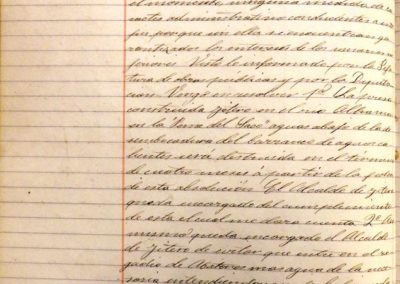 el momento, ninguna medida de ca
racter administrativo conducentes a su
fin porque con ella se encuentran ga
rantizados los intereses de los usuarios
Visto lo informado por la Jefa
tura de obras publicas y por la Diputa
cion. Vengo en resolver 1º La presa
construida Fitero en el rio Alhama
en la "Venna del Saco" aguas abajo de la de
sembocadura del barranco de aguas ca
lientes sera destruida en el término
de cuatro meses á partir de la fecha
de esta absolución. El Alcalde de
queda encargado del cumplimiento
de esta el cual me dara cuenta 2º
mismo queda encargado el Alcalde
de Fitero de evitar que entre en el re
gadio de mas agua de la nece
saria